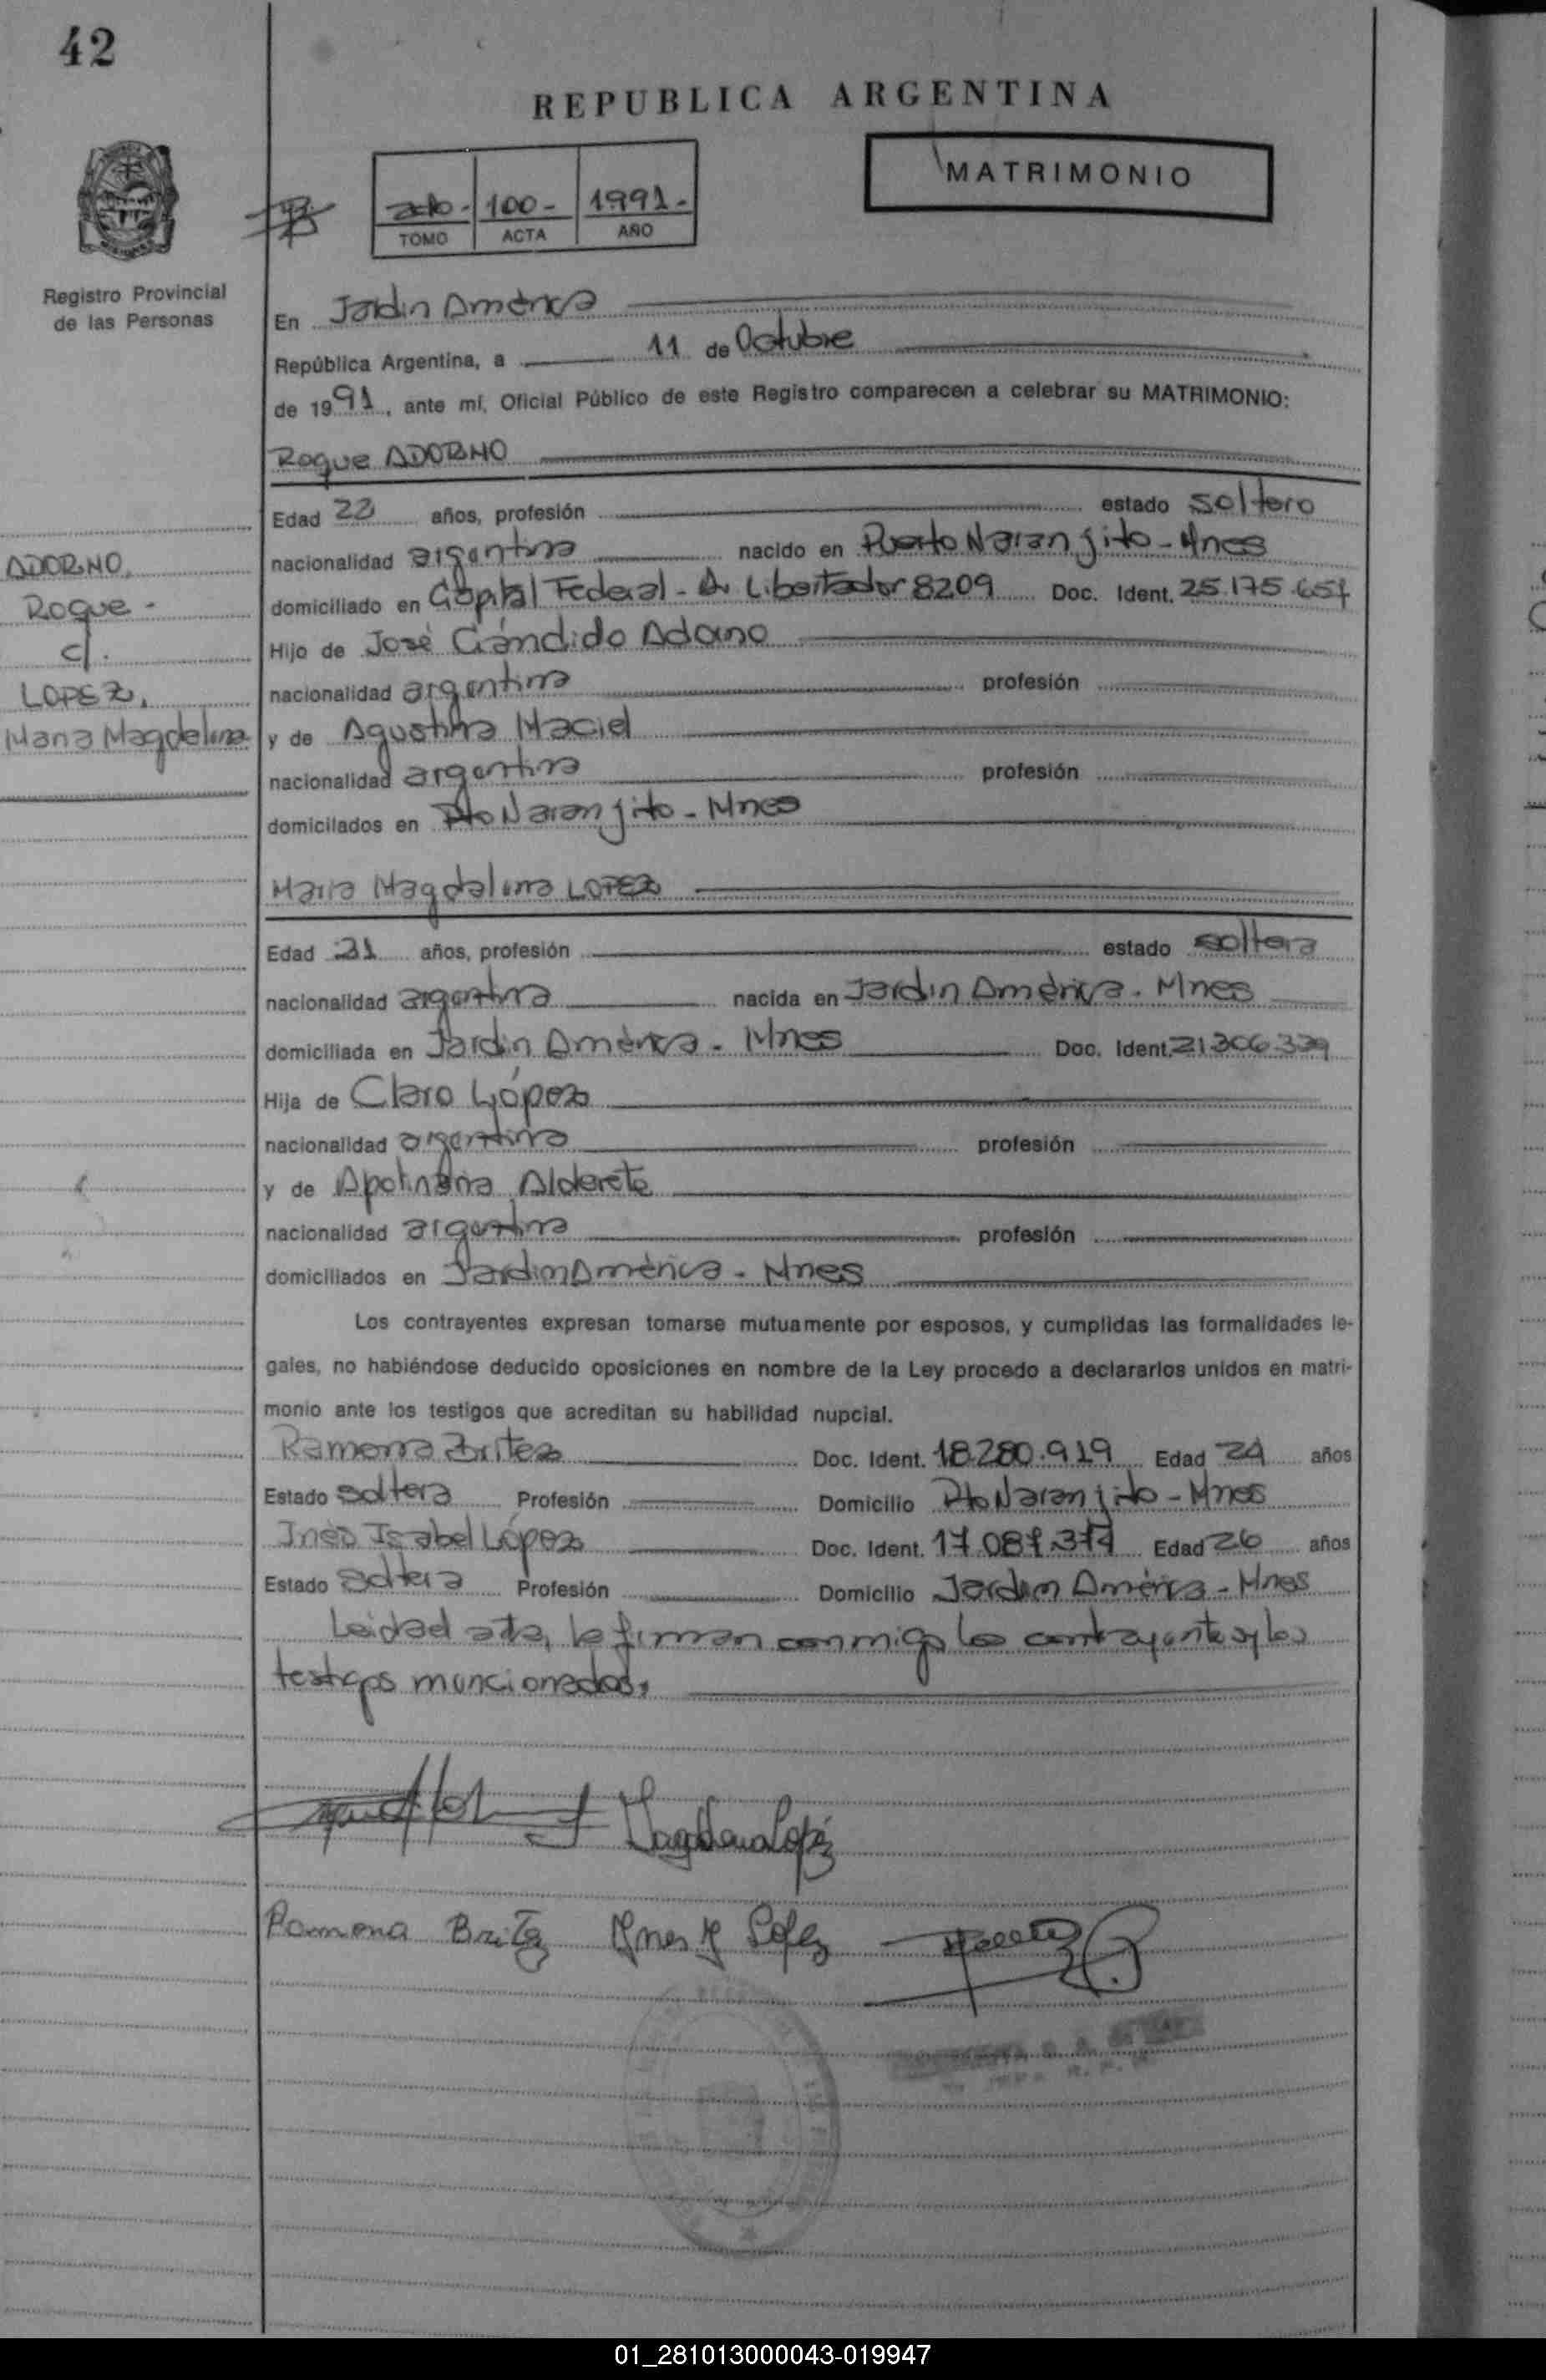 42
REPUBLICA ARGENTINA
MATRIMONIO
2do - 100 - 1991 -
TOMO ACTA AÑO
Registro Provincial
de las Personas
En Jardin América
República Argentina, a 11 de Octubre
de 1991, ante mí, Oficial Público de este Registro comparecen a celebrar su MATRIMONIO:
Roque ADORNO
Edad 22 años, profesión estado soltero
nacionalidad argentina nacido en Puerto Naranjito - Mnes
domiciliado en Capital Federal - Av Libertador 8209 Doc. Ident. 25.175.657
Hijo de José Cándido Adorno
nacionalidad argentina profesión
y de Agustina Maciel
nacionalidad argentina profesión
domicilados en Pto Naranjito - Mnes
ADORNO,
Roque -
c/.
LOPEZ,
Maria Magdelena
Maria Magdalena LOPEZ
Edad 21 años, profesión estado soltera
nacionalidad argentina nacida en Jardin América - Mnes
domiciliada en Jardin América - Mnes Doc. Ident. 21.306.339
Hija de Claro López
nacionalidad argentina profesión
y de Apolinaria Alderete
nacionalidad argentina profesión
domiciliados en Jardin América - Mnes
Los contrayentes expresan tomarse mutuamente por esposos, y cumplidas las formalidades le-
gales, no habiéndose deducido oposiciones en nombre de la Ley procedo a declararlos unidos en matri-
monio ante los testigos que acreditan su habilidad nupcial.
Ramona Britez Doc. Ident. 18.280.919 Edad 24 años
Estado soltera Profesión Domicilio Pto Naranjito - Mnes
Inés Isabel López Doc. Ident. 17.087.377 Edad 26 años
Estado soltera Profesión Domicilio Jardin América - Mnes
Leidad acta, la firman conmigo los contrayentes y los
testigos mencionados.
Magdalena Lopez
Ramona Britez Ynes Y Lopez
01_281013000043-019947